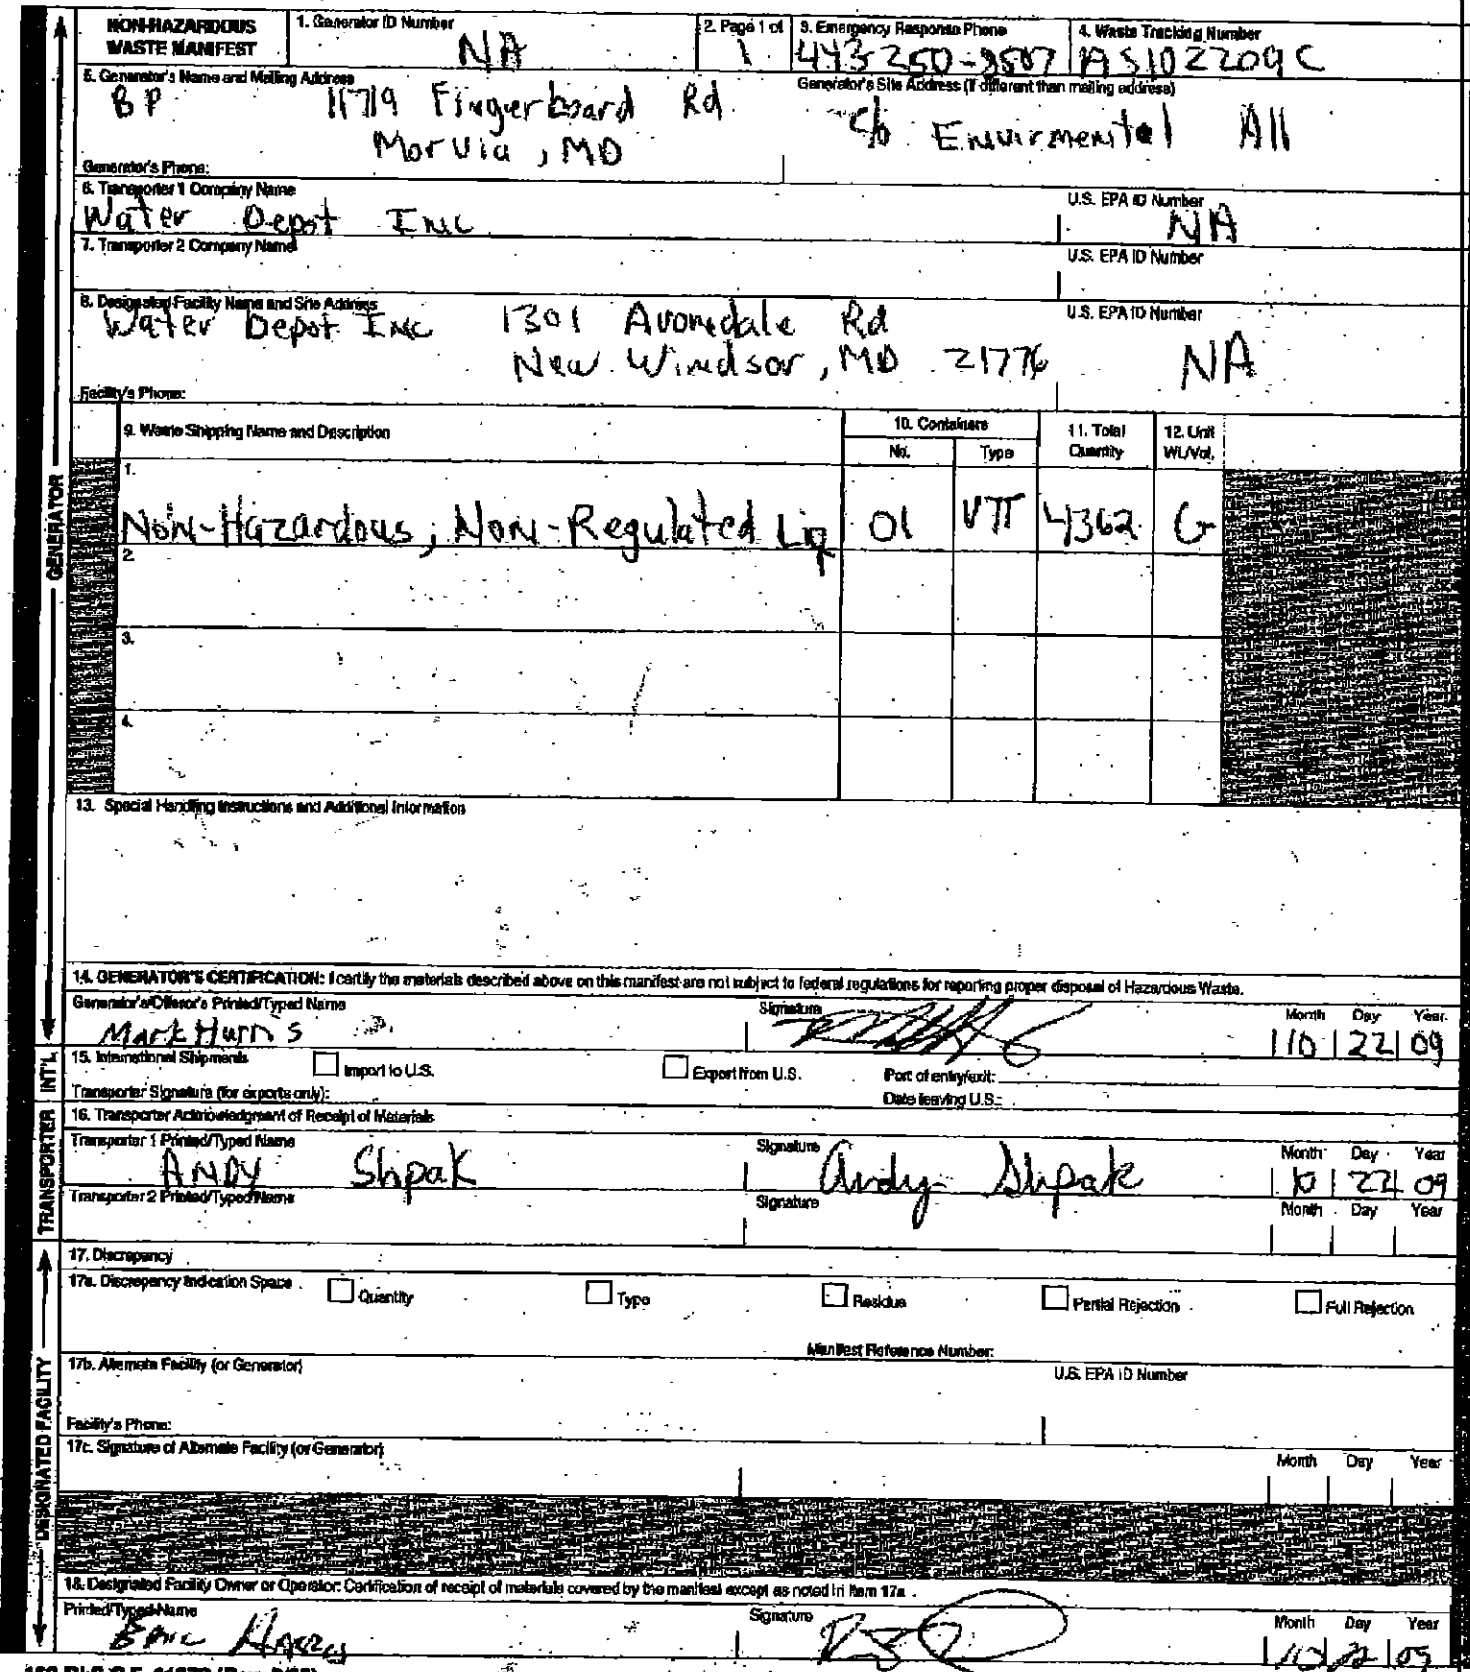 NON-HAZARDOUS
WASTE MANIFEST
1. Generator ID Number
NA
2. Page 1 of
1
3. Emergency Response Phone
443-250-9507
4. Waste Tracking Number
AS102209C
5. Generator's Name and Mailing Address
BP 11719 Fingerboard Rd
Morvia, MD
Generator's Site Address (if different than mailing address)
c/o Envirmental All
Generator's Phone:
6. Transporter 1 Company Name
Water Depot Inc
U.S. EPA ID Number
NA
7. Transporter 2 Company Name
U.S. EPA ID Number
8. Designated Facility Name and Site Address
Water Depot Inc 1301 Avondale Rd
New Windsor, MD 21776
U.S. EPA ID Number
NA
Facility's Phone:
9. Waste Shipping Name and Description
10. Containers
No.
Type
11. Total
Quantity
12. Unit
Wt./Vol.
1.
Non-Hazardous, Non-Regulated Liq 01 VTT 4362 G
2.
3.
4.
13. Special Handling Instructions and Additional Information
14. GENERATOR'S CERTIFICATION: I certify the materials described above on this manifest are not subject to federal regulations for reporting proper disposal of Hazardous Waste.
Generator's/Offeror's Printed/Typed Name
Signature
Month Day Year
Mark Harris
10 22 09
15. International Shipments
Import to U.S.
Export from U.S.
Port of entry/exit:
Transporter Signature (for exports only):
Date leaving U.S.:
16. Transporter Acknowledgment of Receipt of Materials
Transporter 1 Printed/Typed Name
Signature
Month Day Year
ANDY Shpak
Andy Shpak
10 22 09
Transporter 2 Printed/Typed Name
Signature
Month Day Year
17. Discrepancy
17a. Discrepancy Indication Space
Quantity
Type
Residue
Partial Rejection
Full Rejection
Manifest Reference Number:
17b. Alternate Facility (or Generator)
U.S. EPA ID Number
Facility's Phone:
17c. Signature of Alternate Facility (or Generator)
Month Day Year
18. Designated Facility Owner or Operator: Certification of receipt of materials covered by the manifest except as noted in Item 17a
Printed/Typed Name
Signature
Month Day Year
10 22 09
GENERATOR
INT'L
TRANSPORTER
DESIGNATED FACILITY